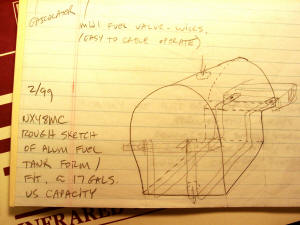 GASCOLATOR /
MW1 FUEL VALVE - WICKS.
(EASY TO CABLE OPERATE)
2/99
NX48MC
ROUGH SKETCH
OF ALUM FUEL
TANK FORM /
FIT. @ 17 GALS.
US CAPACITY
INFRARED